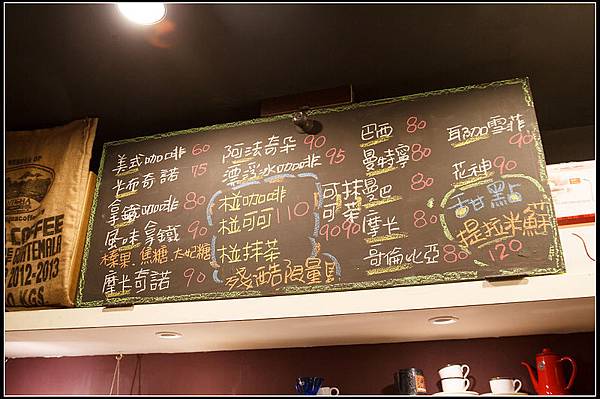 美式咖啡 60
卡布奇諾 75
拿鐵咖啡 80
風味拿鐵 90
榛果.焦糖.太妃糖
摩卡奇諾 90
阿法奇朵 90
漂浮冰咖啡 95
椪咖啡
椪可可 110
椪抹茶
殘酷限量
可抹
可茶
90 90
巴西 80
曼特寧 80
曼巴 80
摩卡 80
哥倫比亞 80
耶加雪菲 90
花神 90
甜點
提拉米蘇
120
COFFEE
GUATEMALA
2012-2013
KGS.